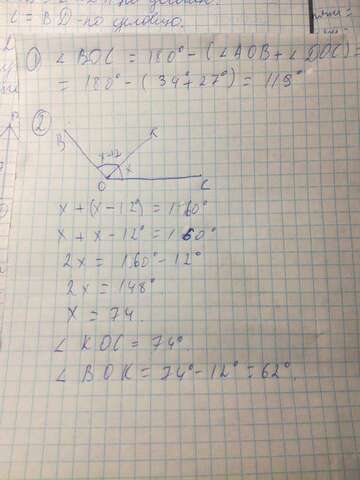 = BD - по условию.
① ∠ BOC = 180° - (∠AOB + ∠DOC) =
= 180° - (34° + 27°) = 119°
②
B
K
x-12
x
O
C
x + (x - 12°) = 160°
x + x - 12° = 160°
2x = 160° - 12°
2x = 148°
x = 74.
∠ KOC = 74°
∠ BOK = 74° - 12° = 62°.